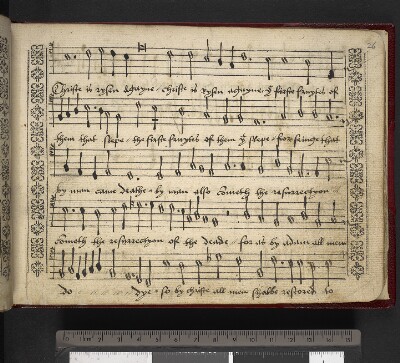 26
Christe is rysen agayne christe is rysen agayne ye firste fruytes of
them that slepe the firste fruytes of them yt slepe for seinge that
by man came deathe by man also cometh the resurrectyon
cometh the resurrectyon of the deade for as by adam all men
do dye so by christe all men shalbe restored to